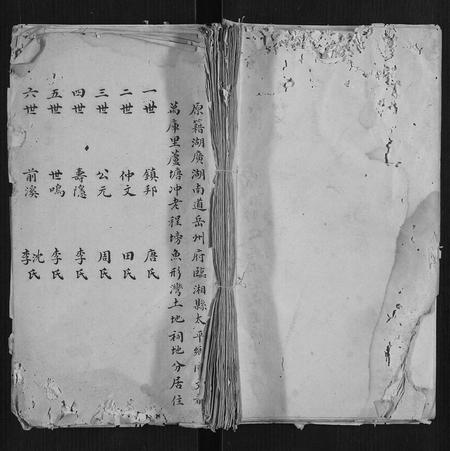 原籍湖廣湖南道岳州府臨湘縣太平鄉
萬庫里蘆塘冲老程塝魚形灣土地祠地分居住
一世 鎮邦 唐氏
二世 仲文 田氏
三世 公元 周氏
四世 壽隱 李氏
五世 世鳴 李氏
六世 前溪 沈氏 李氏